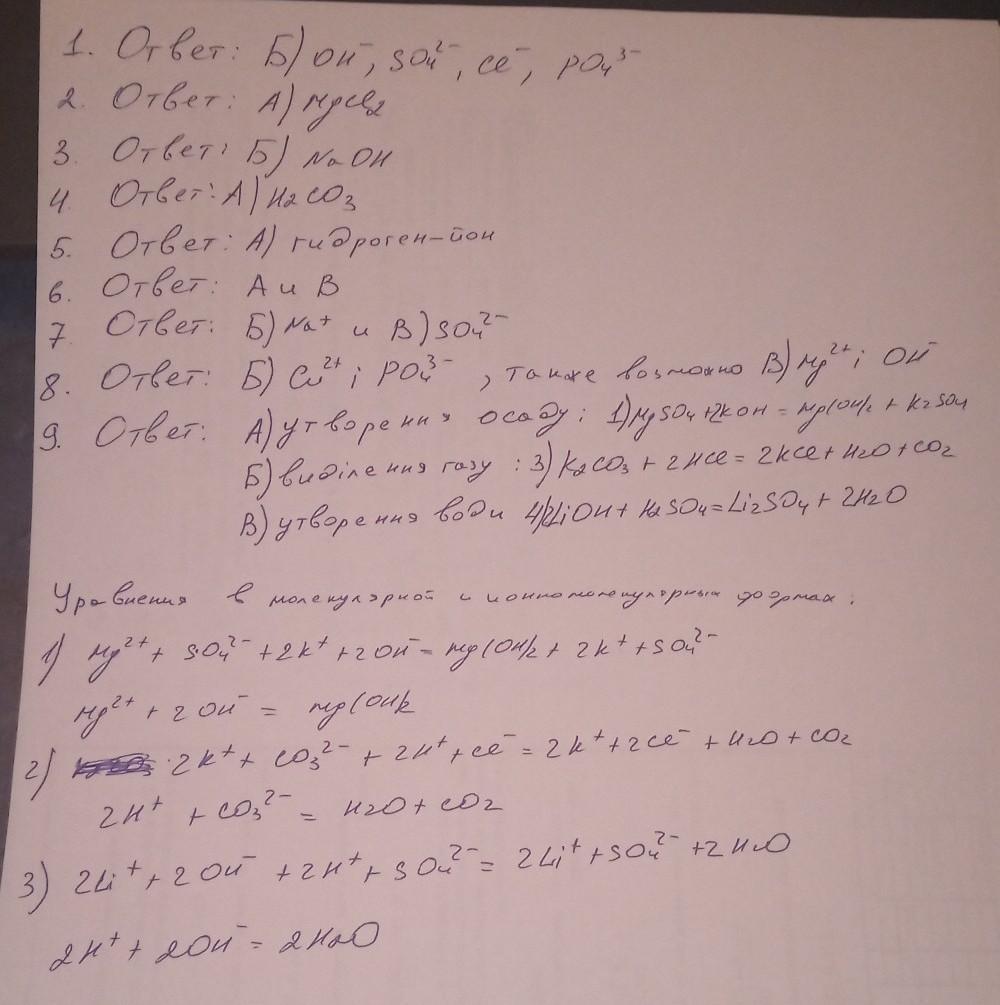 1. Ответ: Б) OH⁻, SO₄²⁻, Cl⁻, PO₄³⁻
2. Ответ: А) MgCl₂
3. Ответ: Б) NaOH
4. Ответ: А) H₂CO₃
5. Ответ: А) гидроген-йон
6. Ответ: А и В
7. Ответ: Б) Na⁺ и В) SO₄²⁻
8. Ответ: Б) Cu²⁺ і PO₄³⁻, также возможно В) Mg²⁺ і OH⁻
9. Ответ: А) утворення осаду: 1) MgSO₄ + 2KOH = Mg(OH)₂ + K₂SO₄
Б) виділення газу: 3) K₂CO₃ + 2HCl = 2KCl + H₂O + CO₂
В) утворення води 4) 2LiOH + H₂SO₄ = Li₂SO₄ + 2H₂O
Уравнения в молекулярной и ионномолекулярных формах:
1) Mg²⁺ + SO₄²⁻ + 2K⁺ + 2OH⁻ = Mg(OH)₂ + 2K⁺ + SO₄²⁻
Mg²⁺ + 2OH⁻ = Mg(OH)₂
2) 2K⁺ + CO₃²⁻ + 2H⁺ + Cl⁻ = 2K⁺ + 2Cl⁻ + H₂O + CO₂
2H⁺ + CO₃²⁻ = H₂O + CO₂
3) 2Li⁺ + 2OH⁻ + 2H⁺ + SO₄²⁻ = 2Li⁺ + SO₄²⁻ + 2H₂O
2H⁺ + 2OH⁻ = 2H₂O